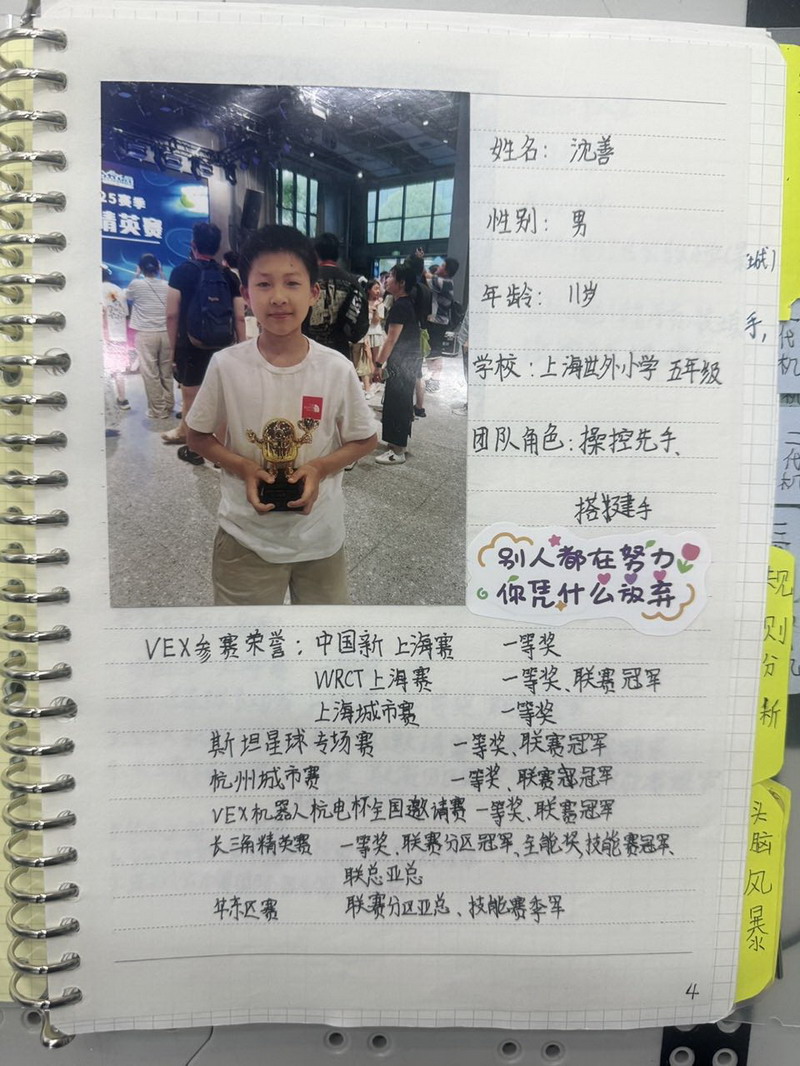 25赛季
精英赛
姓名：沈善
性别：男
年龄：11岁
学校：上海世外小学 五年级
团队角色：操控先手、
搭建手
别人都在努力
你凭什么放弃
VEX参赛荣誉：中国新 上海赛 一等奖
WRCT上海赛 一等奖、联赛冠军
上海城市赛 一等奖
斯坦星球专场赛 一等奖、联赛冠军
杭州城市赛 一等奖、联赛冠军
VEX机器人杭电杯全国邀请赛 一等奖、联赛冠军
长三角精英赛 一等奖、联赛分区冠军、全能奖、技能赛冠军、
联总亚总
华东区赛 联赛分区亚总、技能赛季军
4
手，
代
机
二
代
机
三
规
则
分
析
头
脑
风
暴